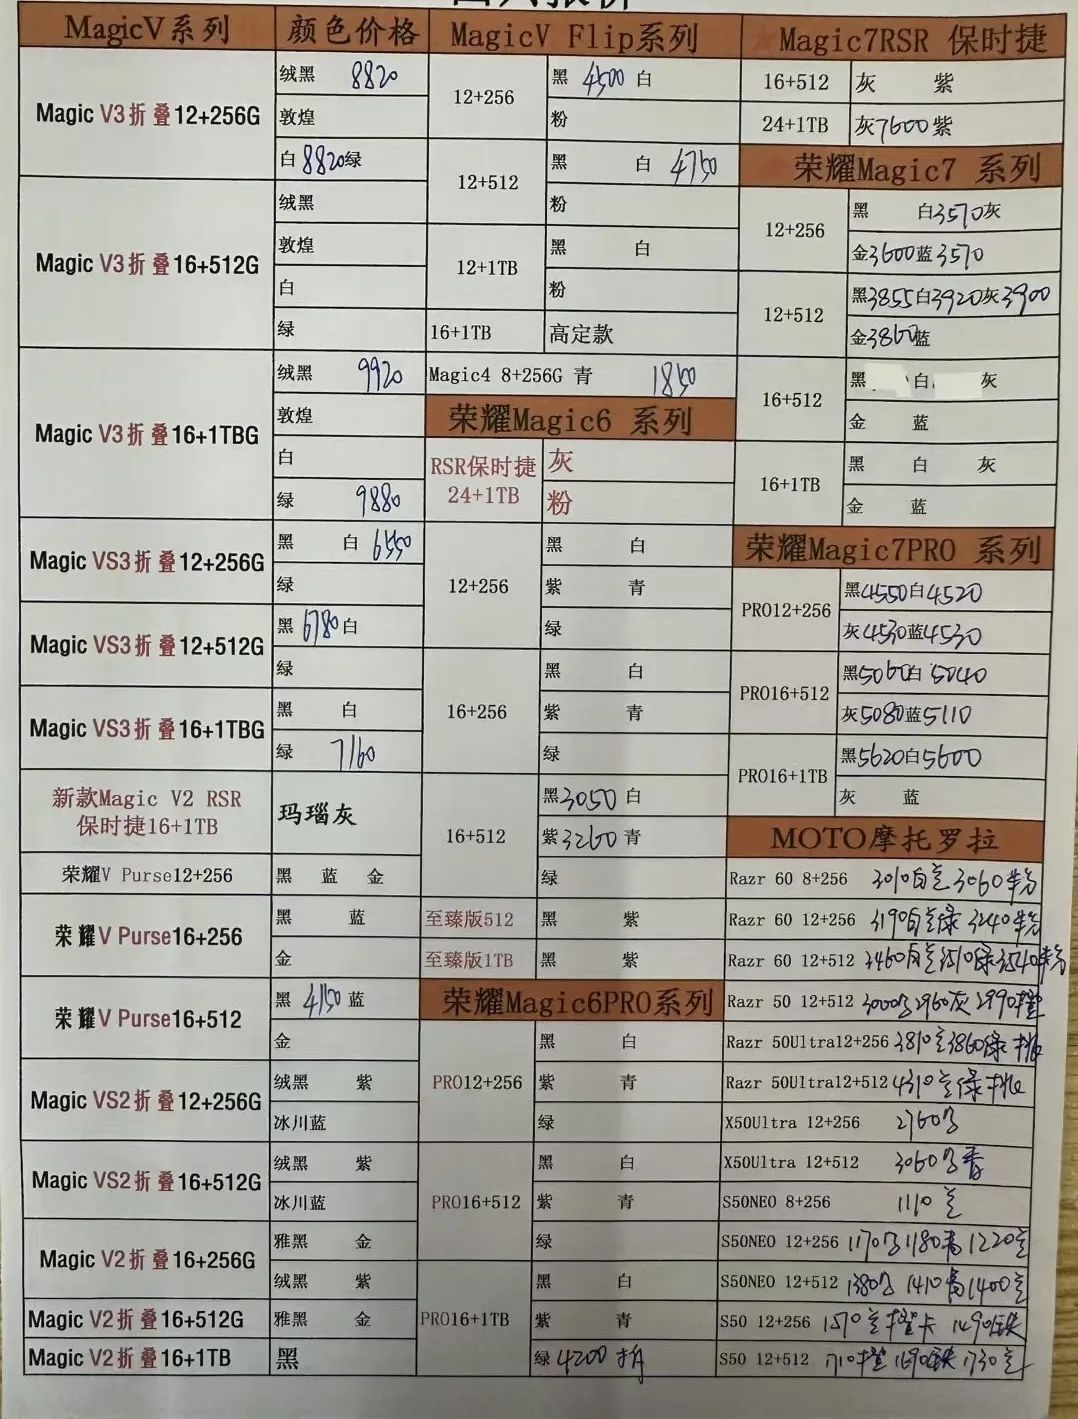 MagicV系列 颜色价格
Magic V3折叠12+256G
绒黑 8820
敦煌
白8820绿
Magic V3折叠16+512G
绒黑
敦煌
白
绿
Magic V3折叠16+1TBG
绒黑 9920
敦煌
白
绿 9880
Magic VS3折叠12+256G
黑 白 6550
绿
Magic VS3折叠12+512G
黑6780白
绿
Magic VS3折叠16+1TBG
黑 白
绿 7160
新款Magic V2 RSR
保时捷16+1TB
玛瑙灰
荣耀V Purse12+256
黑 蓝 金
荣耀V Purse16+256
黑 蓝
金
荣耀V Purse16+512
黑 4150 蓝
金
Magic VS2折叠12+256G
绒黑 紫
冰川蓝
Magic VS2折叠16+512G
绒黑 紫
冰川蓝
Magic V2折叠16+256G
雅黑 金
绒黑 紫
Magic V2折叠16+512G
雅黑 金
Magic V2折叠16+1TB
黑
MagicV Flip系列
12+256
黑 4500 白
粉
12+512
黑 白 4750
粉
12+1TB
黑 白
粉
16+1TB 高定款
Magic4 8+256G 青 1850
荣耀Magic6 系列
RSR保时捷
24+1TB
灰
粉
12+256
黑 白
紫 青
绿
16+256
黑 白
紫 青
绿
16+512
黑3050白
紫3260青
绿
至臻版512 黑 紫
至臻版1TB 黑 紫
荣耀Magic6PRO系列
PRO12+256
黑 白
紫 青
绿
PRO16+512
黑 白
紫 青
绿
PRO16+1TB
黑 白
紫 青
绿 4200
Magic7RSR 保时捷
16+512 灰 紫
24+1TB 灰7600紫
荣耀Magic7 系列
12+256
黑 白3570灰
金3600蓝3570
12+512
黑3855白3920灰3900
金3860蓝
16+512
黑 白 灰
金 蓝
16+1TB
黑 白 灰
金 蓝
荣耀Magic7PRO 系列
PRO12+256
黑4550白4520
灰4530蓝4530
PRO16+512
黑5060白5040
灰5080蓝5110
PRO16+1TB
黑5620白5600
灰 蓝
MOTO摩托罗拉
Razr 60 8+256 3010白兰3060粉
Razr 60 12+256 3190白兰绿 3240粉
Razr 60 12+512 3460白兰3510绿3540粉
Razr 50 12+512 3000 2960灰 2990橙
Razr 50Ultra12+256 3810兰3860绿 桃
Razr 50Ultra12+512 4310兰绿桃
X50Ultra 12+256 2760
X50Ultra 12+512 3060
S50NEO 8+256 1110兰
S50NEO 12+256 1170 1180 1220兰
S50NEO 12+512 1380 1410 1400兰
S50 12+256 1570兰橙 1490
S50 12+512 1710橙 1690 1730兰